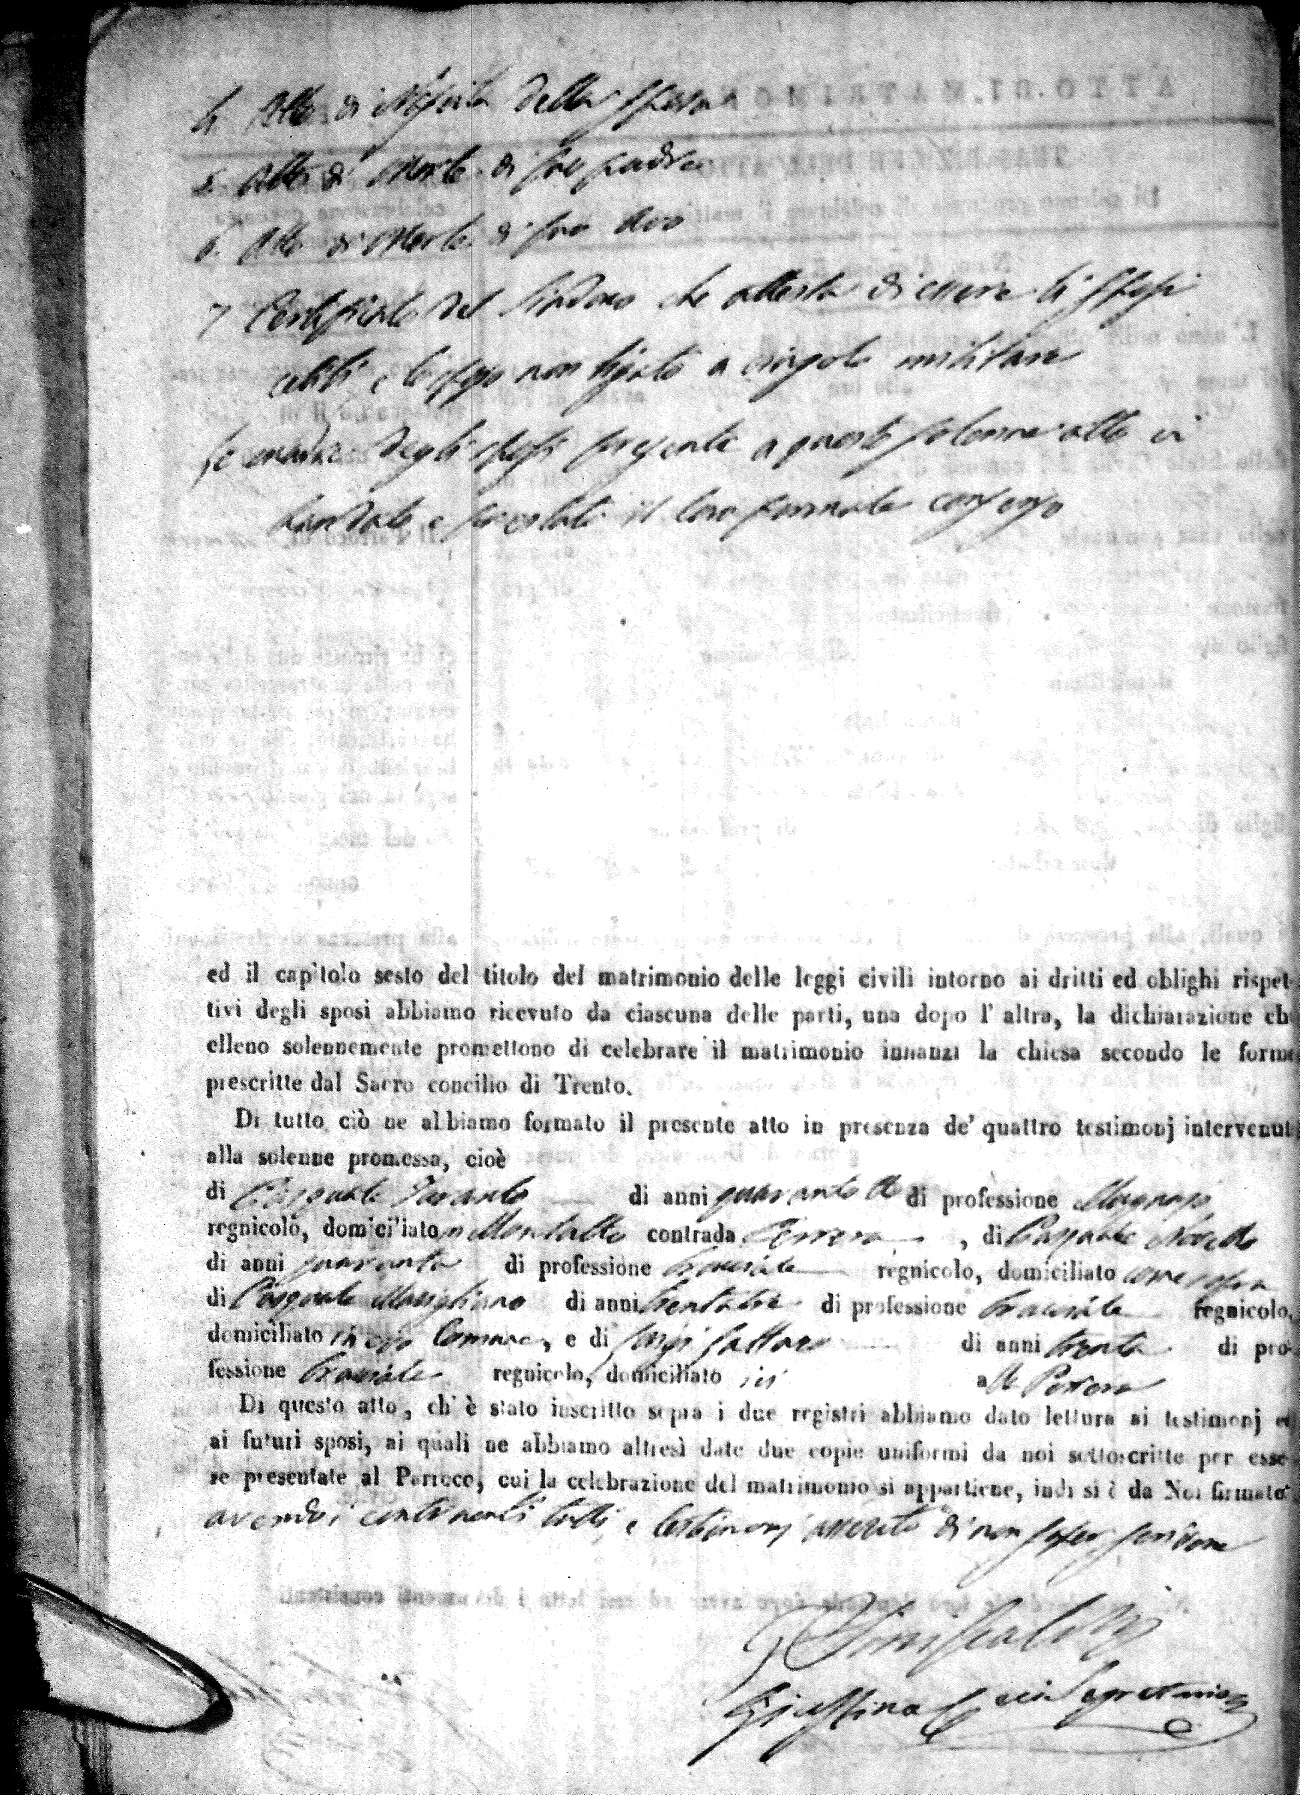 4. Atto di Nascita della Sposa
5. Atto di Morte di suo padre
6. Atto di Morte di suo Avo
7 Certificato del Sindaco che attesta di essere li sposi
celibi, e lo sposo non ligato a vingolo militare
Le madri degli sposi presenti a questo solenne atto vi
han dato e prestato il loro formale consenso
ed il capitolo sesto del titolo del matrimonio delle leggi civili intorno ai dritti ed oblighi rispet-
tivi degli sposi abbiamo ricevuto da ciascuna delle parti, una dopo l' altra, la dichiarazione ch
elleno solennemente promettono di celebrare il matrimonio innanzi la chiesa secondo le forme
prescritte dal Sacro concilio di Trento.
Di tutto ciò ne abbiamo formato il presente atto in presenza de' quattro testimonj intervenut
alla solenne promessa, cioè
di Pasquale Taranto di anni quarantotto di professione
regnicolo, domiciliato in Montalto contrada , di Pasquale
di anni quaranta di professione bracciale regnicolo, domiciliato come sopra
di Pasquale Marigliano di anni trentatre di professione bracciale regnicolo,
domiciliato in esso Comune, e di Luigi Gallaro di anni trenta di pro-
fessione bracciale regnicolo, domiciliato ivi a
Di questo atto, ch' è stato inscritto sopra i due registri abbiamo dato lettura ai testimonj e
ai futuri sposi, ai quali ne abbiamo altresì date due copie uniformi da noi sottoscritte per esse-
re presentate al Parroco, cui la celebrazione del matrimonio si appartiene, indi si è da Noi firmato
avendo i contraenti tutti e testimonj asserito di non saper scrivere
Segretario